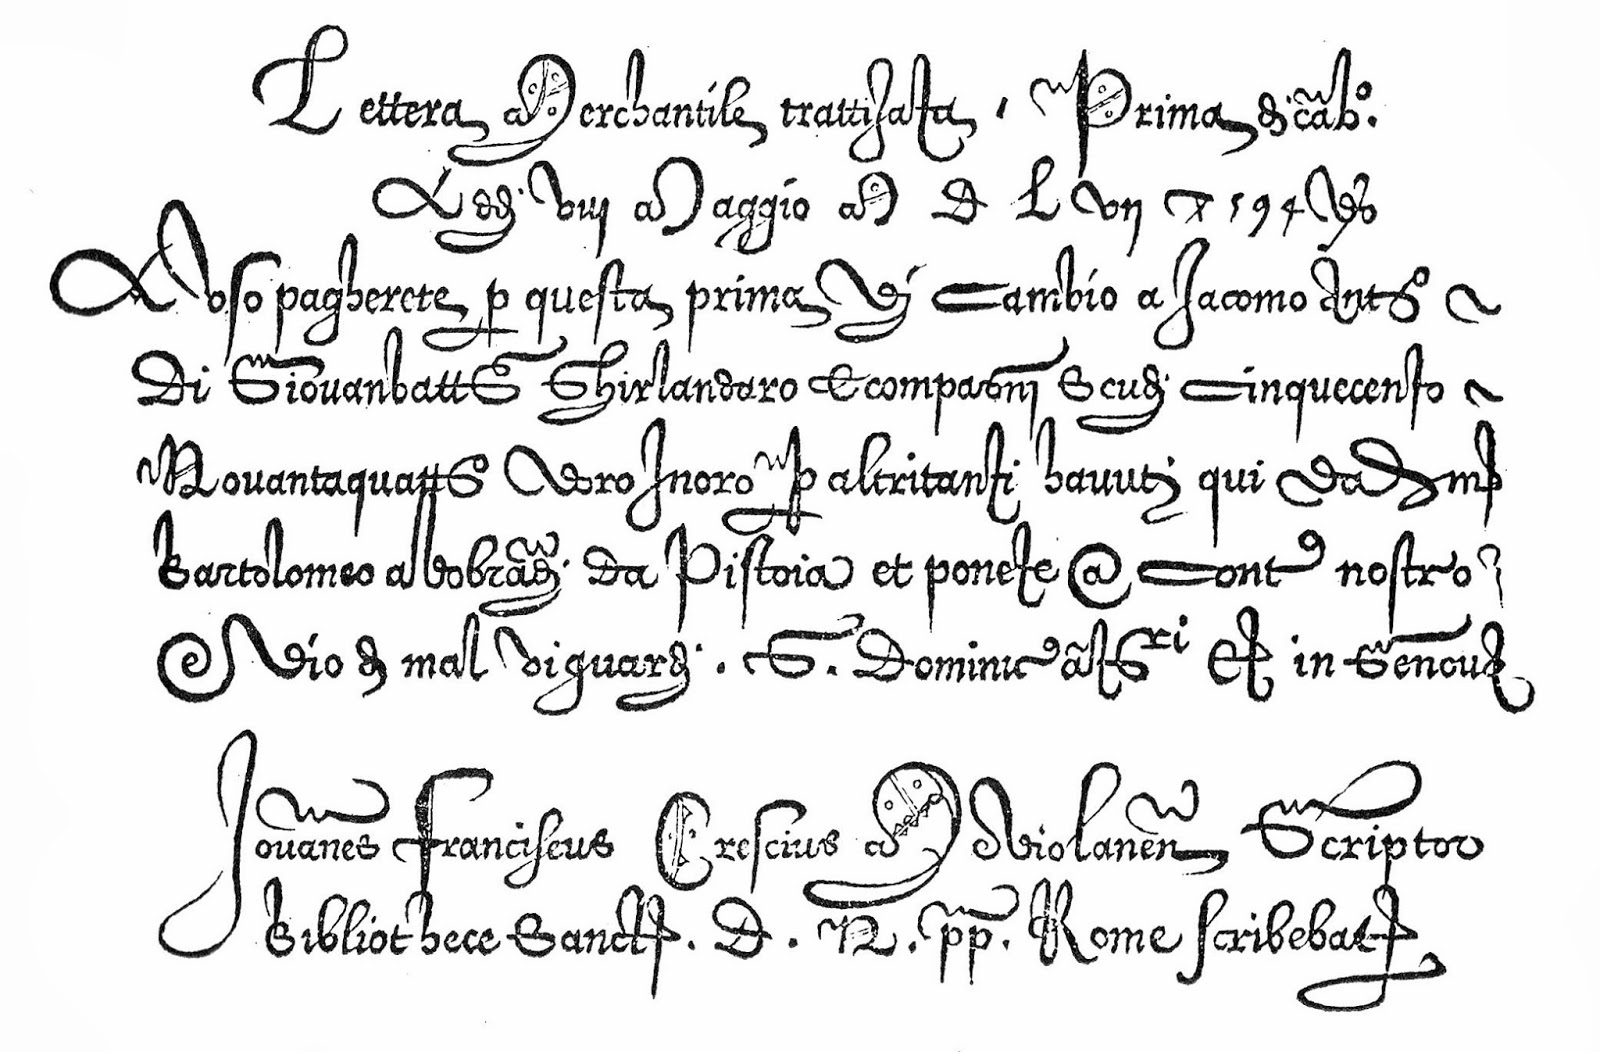 Lettera Merchantile trattizata. Prima di cãbº.
Adi viii Maggio M D L VII ▽ 594 
A Uso pagherete p questa prima di Cambio a Jacomo Antº
Di Giovanbattª Ghirlandaro & compagni Scudi Cinquecento
Novantaquattº doro Inoro p altritanti havuti qui da
Bartolomeo aldobrãdi da Pistoia et ponete @ Conto nostro
Idio di mal vi guardi. S. Dominico Et in Genova
Jovanes Franciscus Crescius Mediolanen Scriptor
Bibliothece Sanct. D. N. pp. Rome scribebat